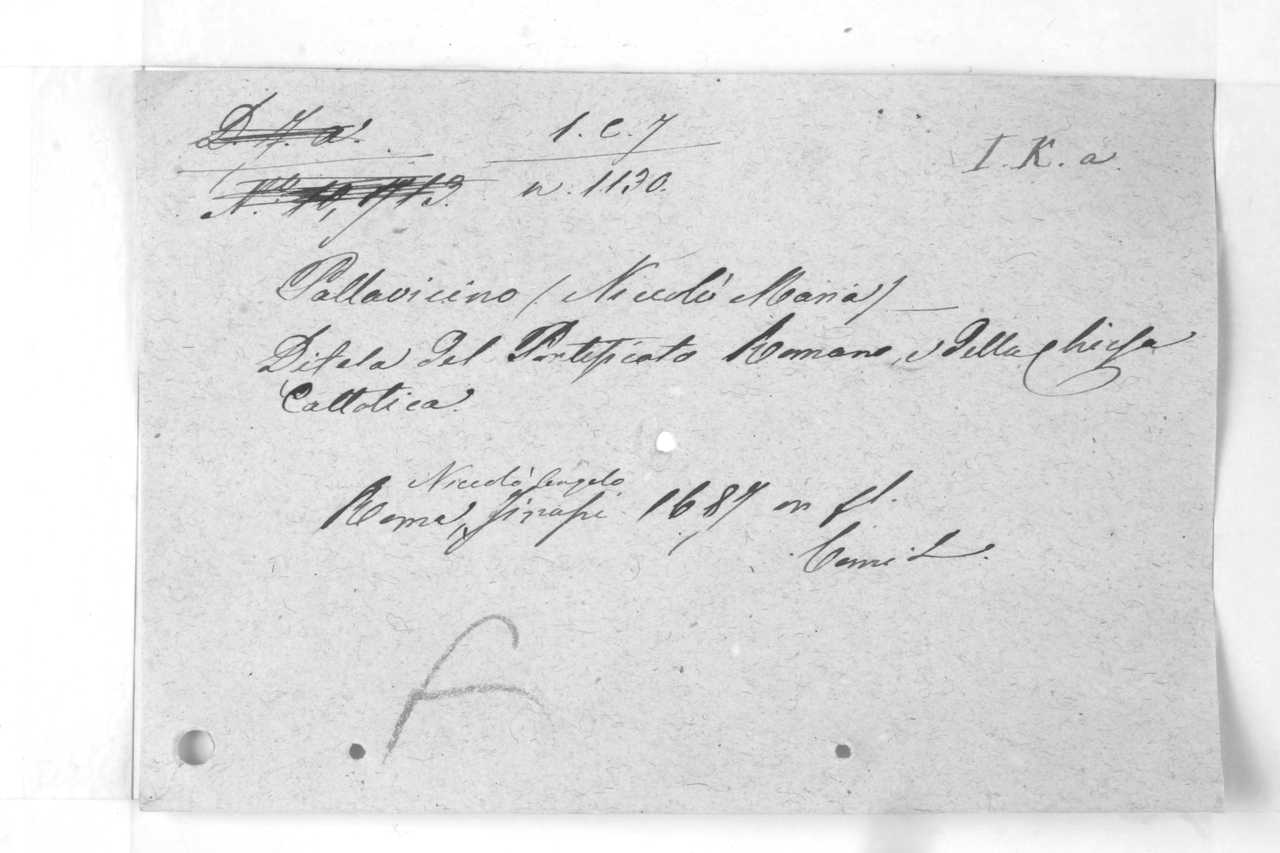 D. 7. a. 1. C. 7 I. K. a
No. 10,713. n. 1130.
Pallavicino (Niccolò Maria)
Difela del Pontificato Romano, e della Chiesa
Cattolica.
Niccolò Angelo
Roma, Tinassi 1687 in fl.